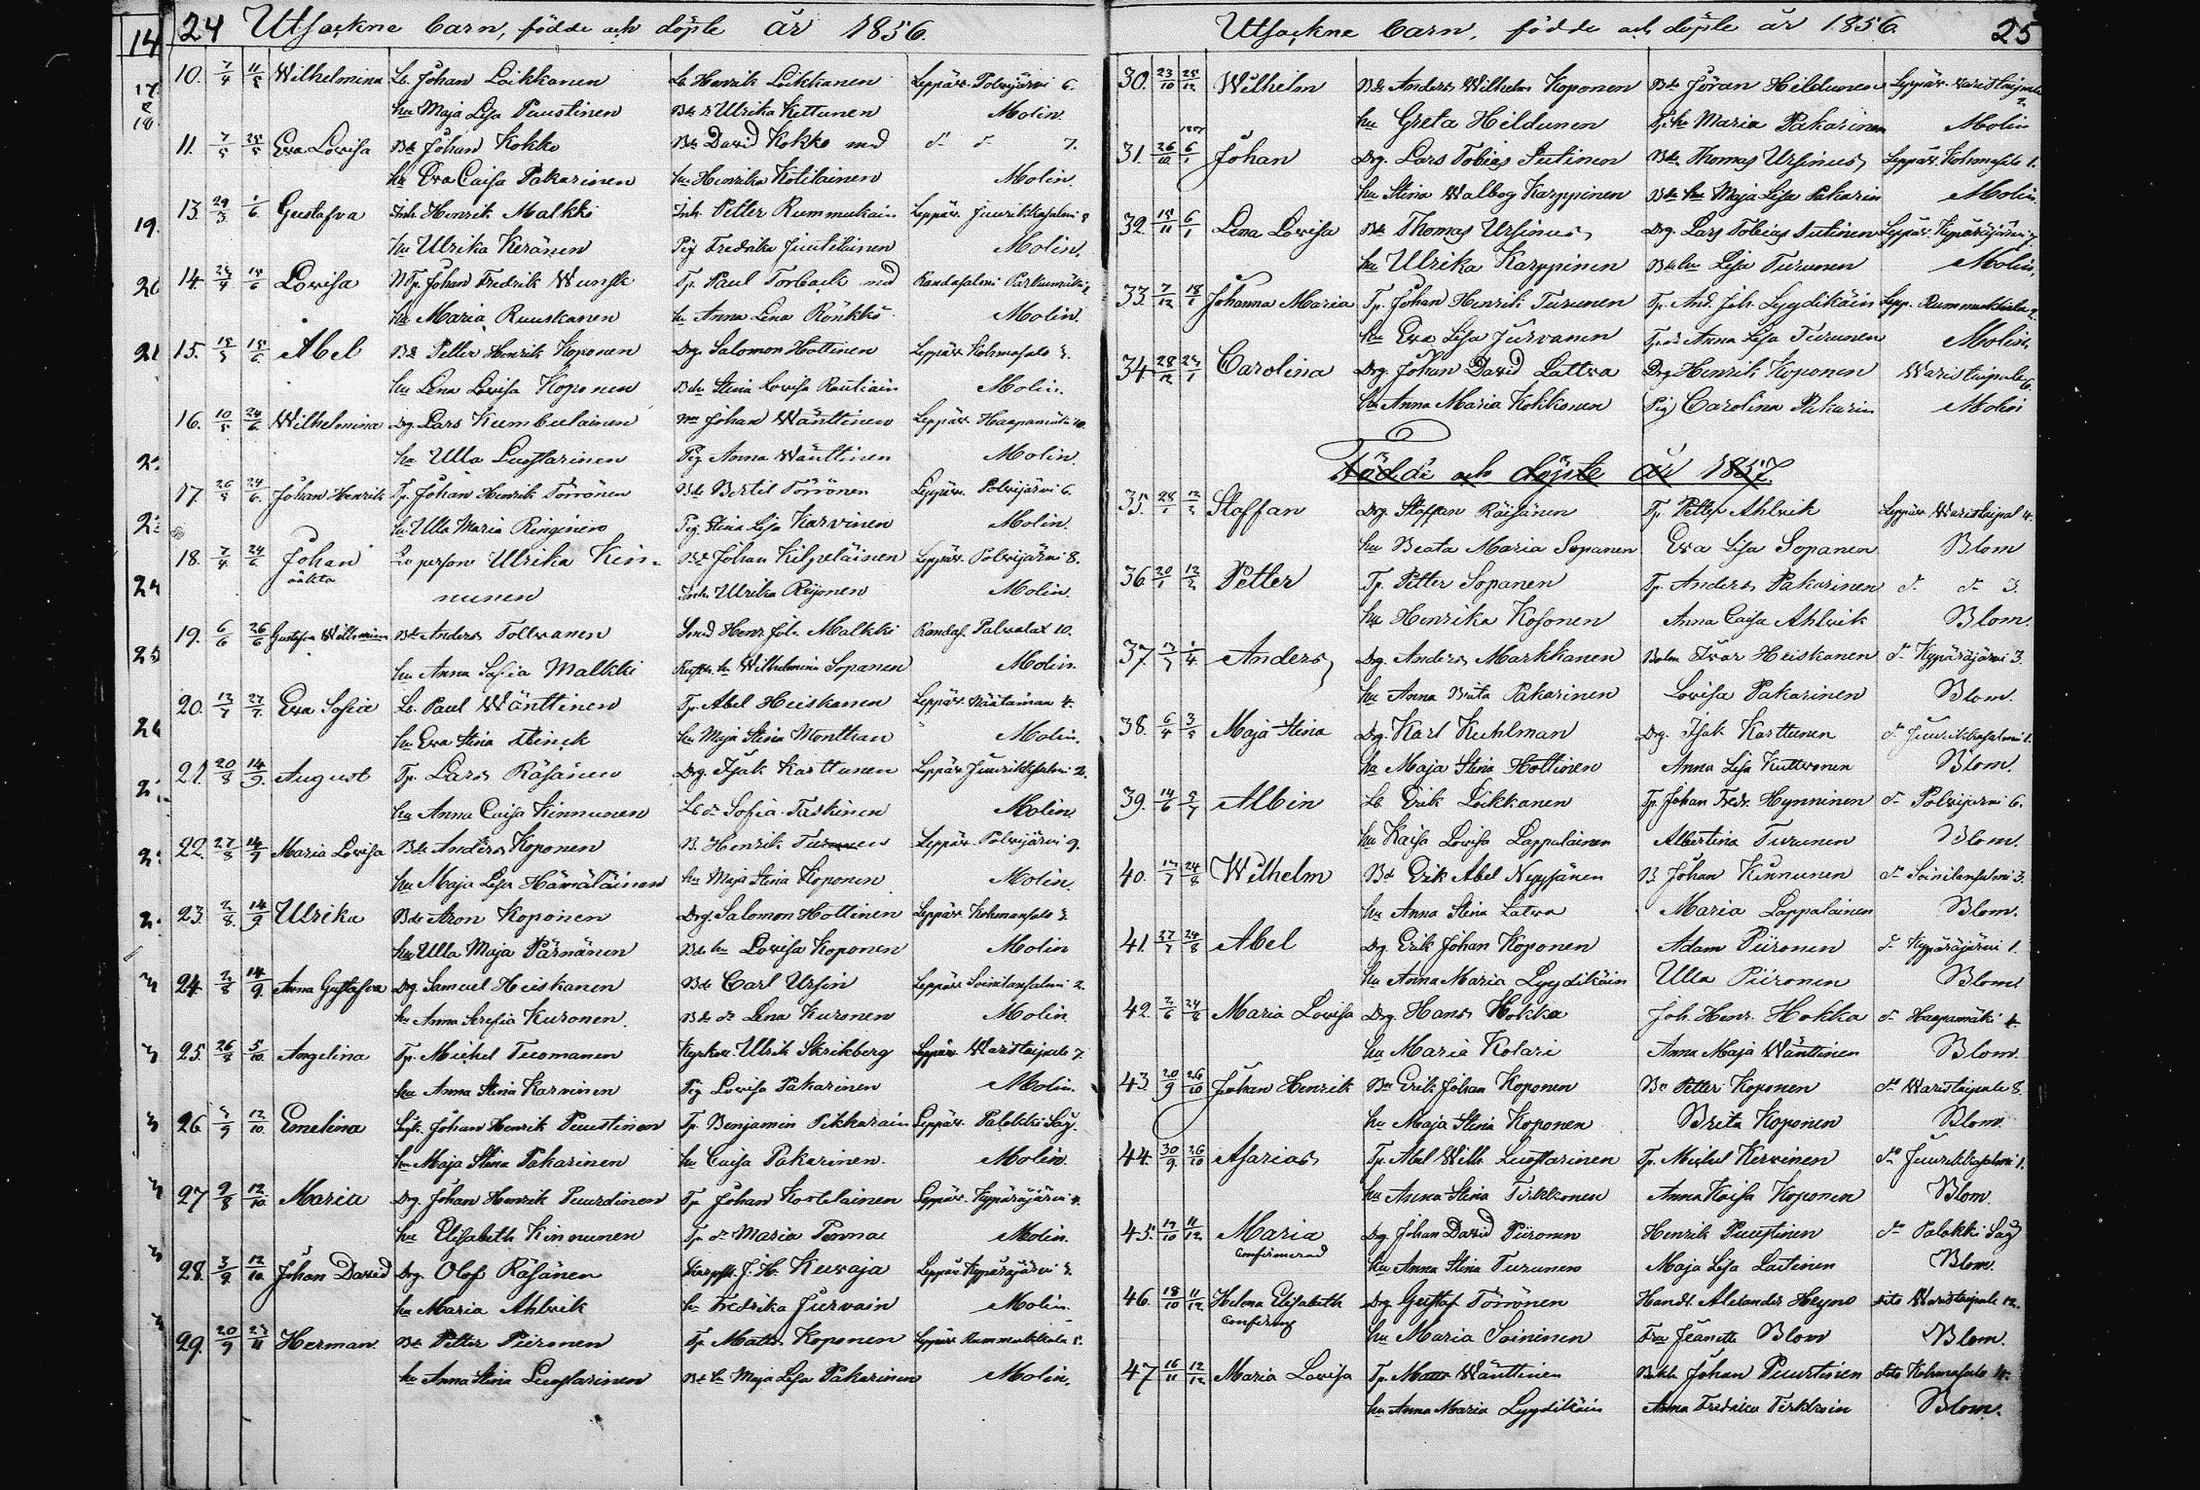 24 Utsockne barn, födde och döpte år 1856.
10. 7/4 11/5 Wilhelmina Lb. Johan Loikkanen Lb Henrik Loikkanen Leppäv. Polvijärvi 6.
hu Maja Lisa Puustinen Bdr Ulrika Kettunen Molin.
11. 7/5 25/5 Eva Lovisa Bde Johan Kokko Bde David Kokko md d:o d:o 7.
hu Eva Caisa Pakarinen hu Henrika Kotilainen Molin.
13. 29/3 1/6 Gustafva Inh. Henrik Malkki Inh. Petter Rummukain Leppäv. Juurikkasalmi
hu Ulrika Keränen Pig Fredrika Juutilainen Molin.
14. 15/6 Lovisa Johan Fredrik Tp. Paul Torback md Randasalmi
hu Maria Ruuskanen hu Anna Lena Rönkkö Molin.
15. 15/6 Abel Bde Petter Henrik Koponen Drg. Salomon Hottinen Leppäv. Kohmasalo 3.
hu Lena Lovisa Koponen Stina Lovisa Rautiain Molin.
16. 10/5 24/6 Wilhelmina Drg Lars Kumbulainen Johan Wänttinen Leppäv. Haapamäki 10.
hu Ulla Luostarinen Pig Anna Wänttinen Molin.
17 26/5 24/6. Johan Henrik Tp. Johan Henrik Törrönen Bde Bertil Törrönen Leppäv. Polvijärvi 6.
hu Ulla Maria Ringinen Pig Stina Lisa Karvinen Molin.
18. 7/4 24/6 Johan Lb person Ulrika Kin-
oäkta nunen Bde Johan Kilpeläinen Leppäv. Polvijärvi 8.
Inh. Ulrika Reijonen Molin.
19. 6/6 26/6 Gustafva Wilhelmina Bde Anders Tollvanen Smed Henr. Joh. Malkki Randas. Palvalax 10.
hu Anna Sofia Malkki hu Wilhelmina Sopanen Molin.
20. 13/7 27/7. Eva Sofia Lb. Paul Wänttinen Tp. Abel Heiskanen Leppäv. Näätänmaa 4.
hu Eva Stina Flinck hu Maja Stina Monthan Molin.
21. 20/8 14/9. August Tp. Lars Räsänen Drg. Isak Karttunen Leppäv. Juurikkasalmi 2.
hu Anna Caisa Kinnunen Lb dr Sofia Taskinen Molin
22. 27/8 14/9 Maria Lovisa Bde Anders Koponen B. Henrik Turunen Leppäv. Polvijärvi 9.
hu Maja Lisa Hämäläinen hu Maja Stina Koponen Molin.
23. 2/8. 14/9. Ulrika Bde Aron Koponen Drg. Salomon Hottinen Leppäv. Kohmasalo 3.
hu Ulla Maja Pärnänen Bde hu Lovisa Koponen Molin
24. 2/8 14/9. Anna Gustafva Drg. Samuel Heiskanen Bde Carl Ursin Leppäv. Soinilansalmi 2.
hu Anna Serafia Kuronen. Bde dr Lena Kuronen Molin
25. 26/8 5/10. Angelina Tp. Michel Tuomainen Ulrik Skrikberg Leppäv. Waristaipale 7.
hu Anna Stina Karvinen Pig Lovisa Pakarinen Molin.
26. 12/10. Emelina Johan Henrik Puustinen Tp. Benjamin Pikkarain Leppäv. Palokki Såg.
hu Maja Stina Pakarinen hu Caisa Pakarinen. Molin.
27 9/8 12/10. Maria Drg Johan Henrik Puurdinen Tp Johan Kotilainen Leppäv. Kypäräjärvi 4.
hu Elisabeth Kinnunen Tp dr Maria Tenma Molin.
28. 3/9. 12/10. Johan David Drg. Olof Räsänen J. H. Kuvaja Leppäv. Kypäräjärvi 3.
hu Maria Ahlvik hu Fredrika Jurvain Molin.
29. 20/9 23/11 Herman. Bde Petter Piironen Tp. Matts Koponen Leppäv. Rummukkala 5.
hu Anna Stina Luostarinen Bde hu Maja Lisa Pakarinen Molin.
Utsockne barn, födde och döpte år 1856. 25
30. 23/10 25/12 Wilhelm Bde Anders Wilhelm Koponen Bde Jöran Heildunen Leppäv. Waristaipale
hu Greta Heildunen Tp. hu Maria Pakarinen Molin
31. 26/12 1857 6/1 Johan Drg. Lars Tobias Sutinen Bde Thomas Ursinus Leppäv. Kohmasalo 1.
hu Stina Walbog Karppinen Bde hu Maja Lisa Pakarin Molin.
32. 15/11 6/1 Lena Lovisa Bde Thomas Ursinus Drg. Lars Tobias Sutinen Leppäv. Kypäräjärvi
hu Ulrika Karppinen Bde hu Lisa Turunen Molin.
33. 7/12 18/1 Johanna Maria Tp. Johan Henrik Turunen Tp. And. Joh. Lyydikäin Lepp. Rummukkala 2.
hu Eva Lisa Jurvanen Tp. dr Anna Lisa Turunen Molin.
34 28/12 25/1 Carolina Drg. Johan David Lattva Drg. Henrik Koponen Waristaipale
hu Anna Maria Kokkonen Pig Carolina Pakarin Molin
Födde och döpte år 1857.
35. 28/1 12/2 Staffan Drg Staffan Räisänen Tp. Petter Ahlvik Leppäv. Waristaipal 4.
hu Beata Maria Sopanen Eva Lisa Sopanen Blom
36 20/1 12/2 Petter Tp. Petter Sopanen Tp. Anders Pakarinen d:o d:o 3.
hu Henrika Kosonen Anna Caisa Ahlvik Blom.
37. 1/4 Anders Drg. Anders Markkanen Bolm Ivar Heiskanen d:o Kypäräjärvi 3.
hu Anna Brita Pakarinen Lovisa Pakarinen Blom.
38. 6/4 3/5 Maja Stina Drg. Karl Kuhlman Drg. Isak Karttunen d:o Juurikkasalmi 1.
hu Maja Stina Hottinen Anna Lisa Kuttvonen Blom.
39. 14/6 5/7 Albin Lb Erik Loikkanen Tp. Johan Fredr. Hynninen d:o Polvijärvi 6.
hu Kaisa Lovisa Lappalainen Albertina Turunen Blom.
40. 24/8 Wilhelm Bd Erik Abel Neppänen B Johan Kinnunen d:o Soinilansalmi 3.
hu Anna Stina Latva Maria Lappalainen Blom.
41. 27/7 24/8 Abel Drg. Erik Johan Koponen Adam Piironen d:o Kypäräjärvi 1.
hu Anna Maria Lyydikäin Ulla Piironen Blom.
42. 2/6 24/8 Maria Lovisa Drg. Hans Hokka Joh. Henr. Hokka d:o Haapamäki 4.
hu Maria Kolari Anna Maja Wänttinen Blom.
43 20/9 26/10 Johan Henrik Bn Erik Johan Koponen Bn Petter Koponen d:o Waristaipale 8.
hu Maja Stina Koponen Brita Koponen Blom.
44. 30/9. 26/10 Asarias Tp. Abel Wilh Luostarinen Tp. Mickel Kervinen d:o Juurikkasalmi 1.
hu Anna Stina Tirkkonen Anna Kaisa Koponen Blom
45. 17/10 11/12 Maria Drg. Johan David Piironen Henrik Puustinen d:o Palokki Såg
Confirmerad hu Anna Stina Turunen Maja Lisa Laitinen Blom.
46. 18/10 11/12 Helena Elisabeth Drg Gustaf Törrönen Handl. Alexander Heyno dito Waristaipale 12.
Confirmerg hu Maria Soininen Fru Jeanette Blom Blom.
47 16/11 12/12 Maria Lovisa Tp. Matts Wänttinen Johan Puustinen dito Kohmasalo 4.
hu Anna Maria Lyydikäin Anna Fredrica Tirkkoin Blom.